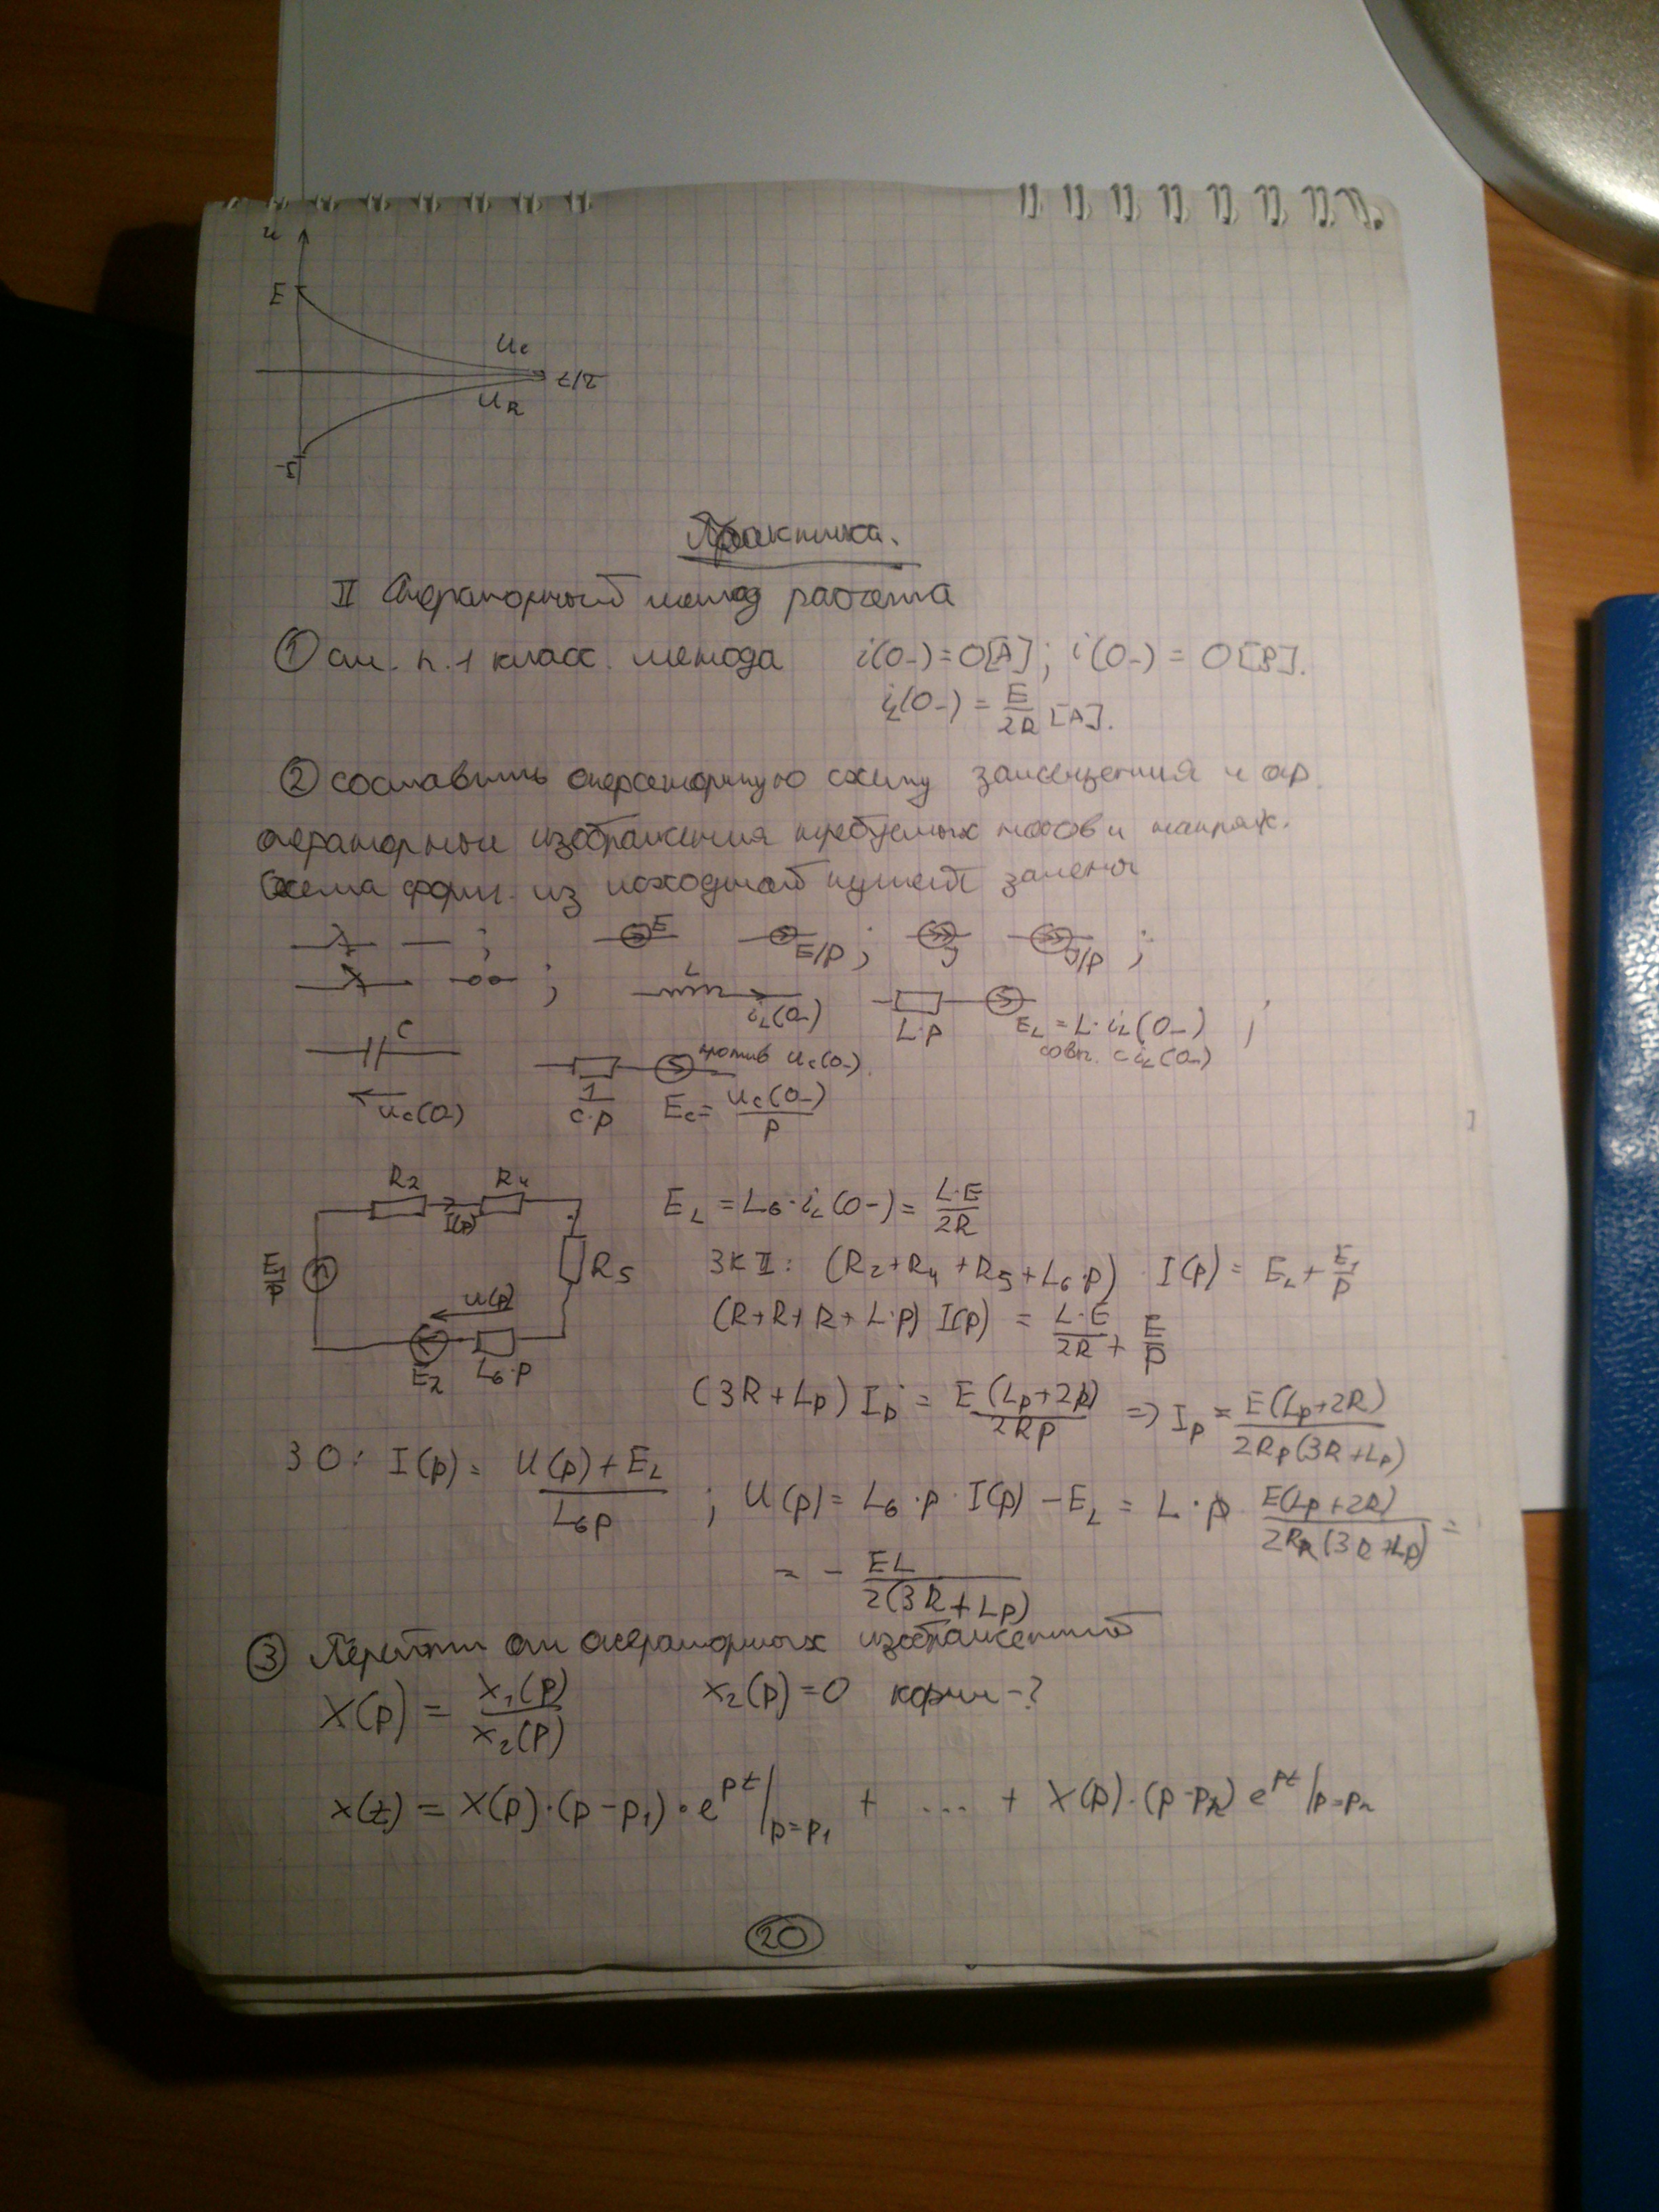 u
E
Uc
t/τ
UR
-E
Практика.
II Операторный метод расчета
① см. п.1 класс. метода i(0-)=0[A]; i(0-) = 0[В].
iL(0-) = E/2R [A].
② составить операторную схему замещения и опр.
операторные изображения требуемых токов и напряж.
Схема форм. из исходной путем замены
; E E/p ; J J/p ;
; L iL(0-) L·p EL = L·iL(0-) ;
совп. с iL(0-)
C против uc(0-).
uc(0-) 1/C·p Ec= uc(0-)/p
R2 R4
I(p) EL = L6·iL(0-) = L·E/2R
E1/p R5 ЗКII: (R2+R4+R5+L6·p) I(p) = EL + E1/p
U(p) (R+R+R+L·p) I(p) = L·E/2R + E/p
EL L6·p
(3R+Lp) Ip = E(Lp+2R)/2Rp => Ip = E(Lp+2R)/2Rp(3R+Lp)
ЗО: I(p) = U(p)+EL/L6p ; U(p) = L6·p·I(p) - EL = L·p E(Lp+2R)/2Rp(3R+Lp) =
= - EL/2(3R+Lp)
③ Перейти от операторных изображений
X(p) = x1(p)/x2(p) x2(p)=0 корни-?
x(t) = X(p)·(p-p1)·e^pt|p=p1 + ... + X(p)·(p-pn) e^pt|p=pn
20